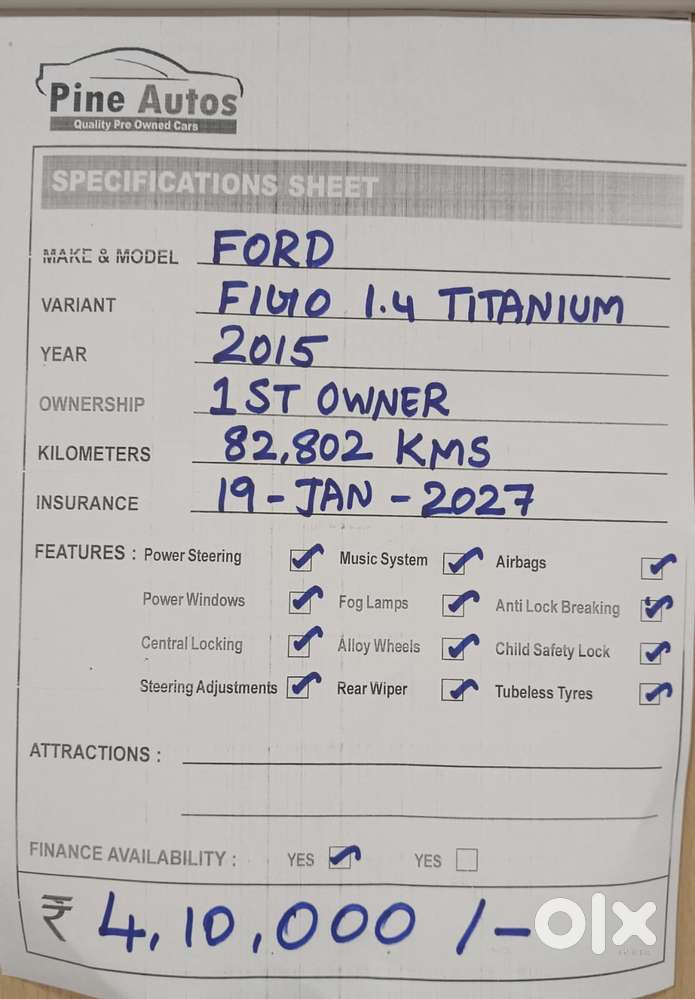 Pine Autos
Quality Pre Owned Cars
SPECIFICATIONS SHEET
MAKE & MODEL FORD
VARIANT FIGO 1.4 TITANIUM
YEAR 2015
OWNERSHIP 1ST OWNER
KILOMETERS 82,802 KMS
INSURANCE 19-JAN-2027
FEATURES : Power Steering ✓ Music System ✓ Airbags ✓
Power Windows ✓ Fog Lamps ✓ Anti Lock Breaking ✓
Central Locking ✓ Alloy Wheels ✓ Child Safety Lock ✓
Steering Adjustments ✓ Rear Wiper ✓ Tubeless Tyres ✓
ATTRACTIONS :
FINANCE AVAILABILITY : YES ✓ YES
₹ 4,10,000 /-
olx